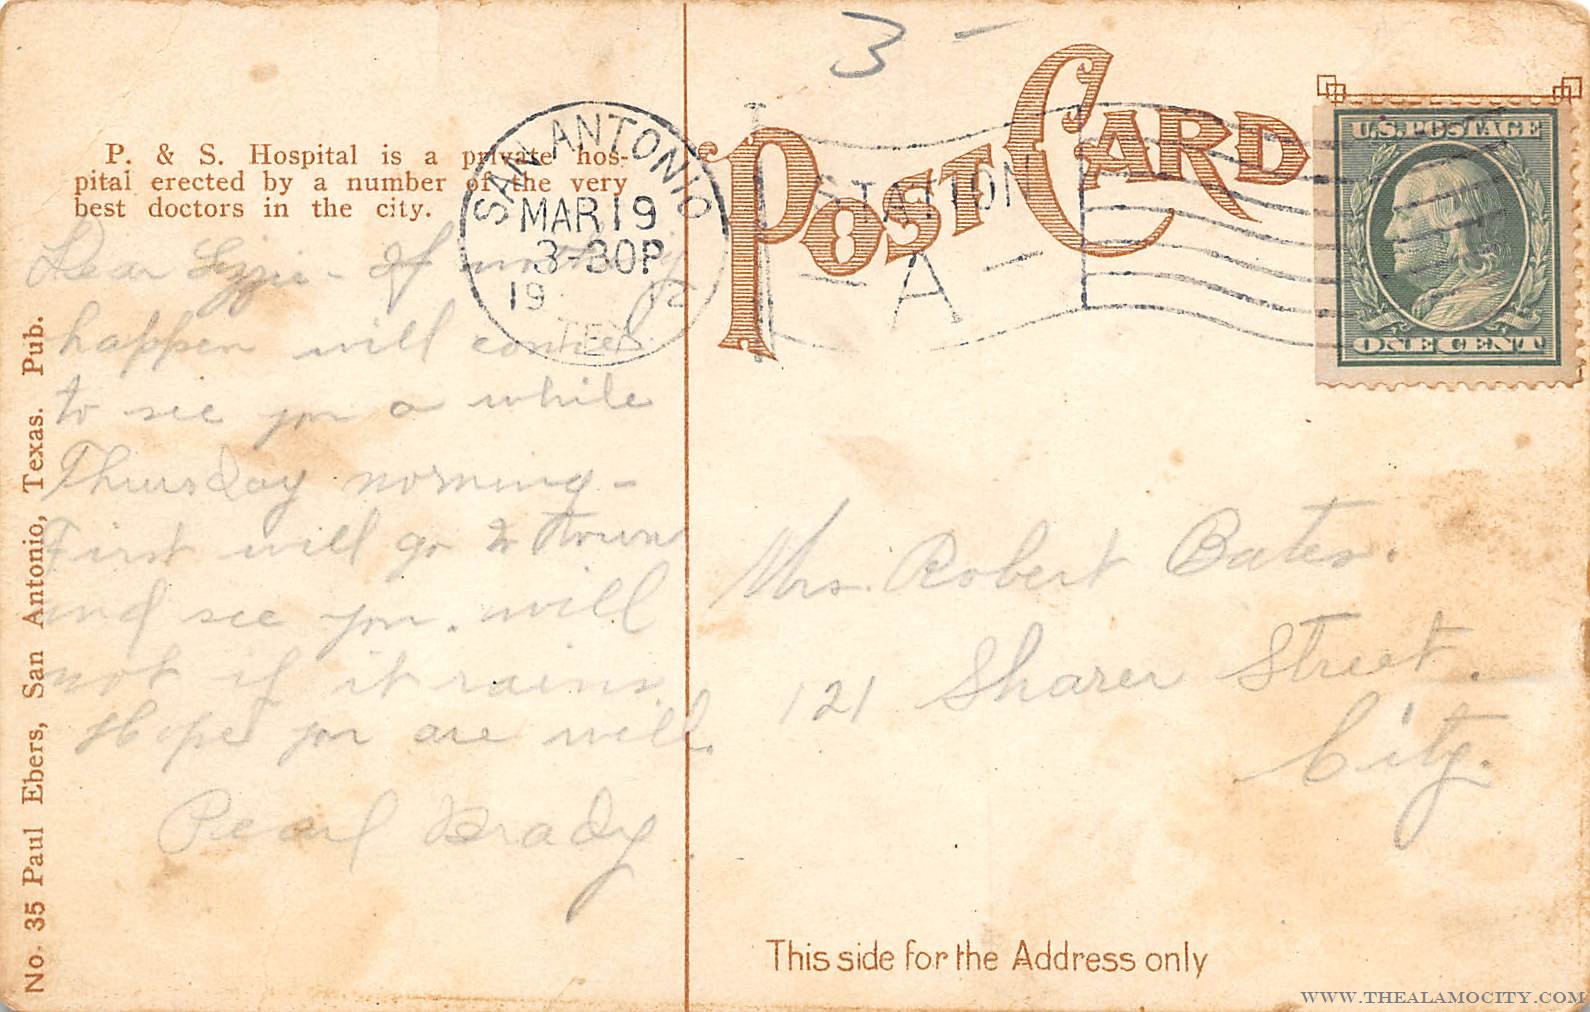 3 -
P. & S. Hospital is a private hos-
pital erected by a number of the very
best doctors in the city.
SAN ANTONIO
MAR 19
3-30P
19
TEX.
STATION
A
POST CARD
U.S. POSTAGE
ONE CENT
Dear Lizzie - If nothing
happen will come
to see you a while
Thursday morning -
First will go to town
and see you. will
not if it rains
Hope you are well.
Pearl Brady
Mrs. Robert Bates.
121 Sharer Street.
City.
No. 35 Paul Ebers, San Antonio, Texas. Pub.
This side for the Address only
WWW.THEALAMOCITY.COM